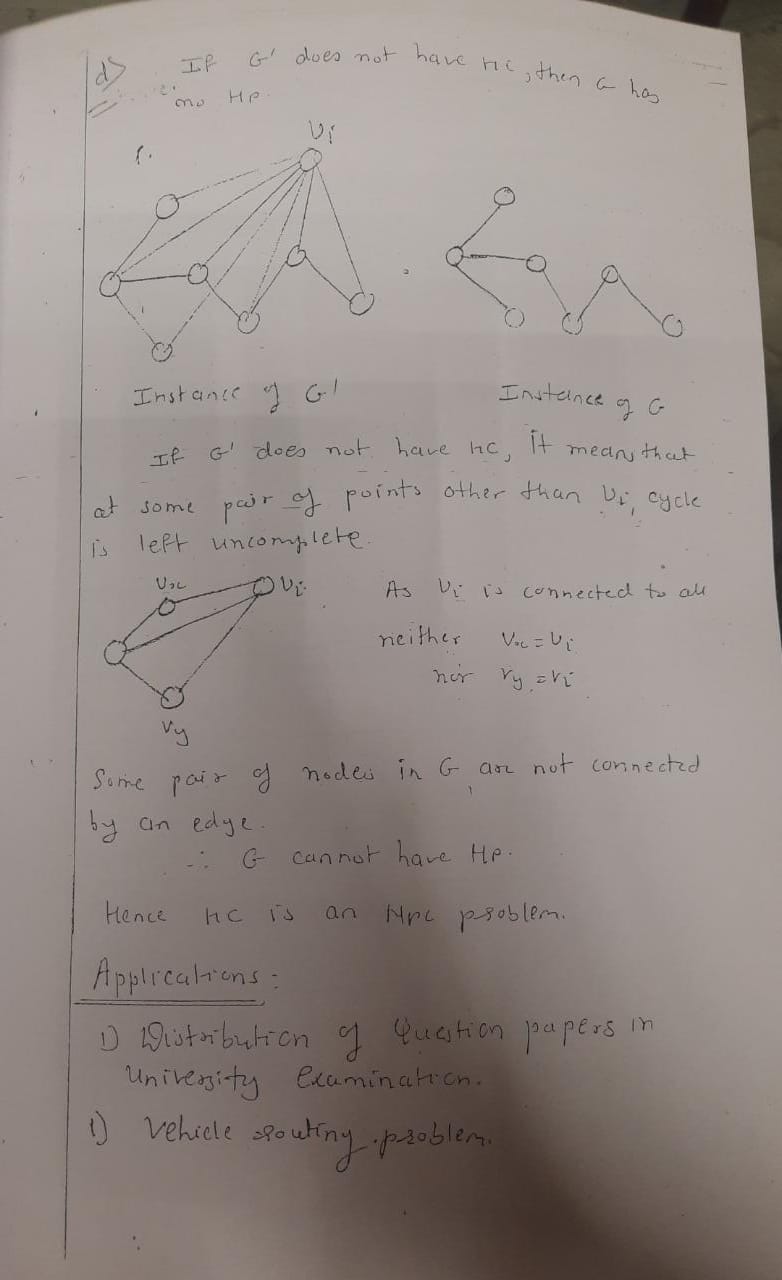 d) If G' does not have HC, then G has
no HP
1.
Vi
Instance of G'
Instance of G
If G' does not have HC, It means that
at some pair of points other than Vi, cycle
is left uncomplete.
Vx
Vi
As Vi is connected to all
neither Vx = Vi
nor Vy = Vi
Vy
Some pair of nodes in G, are not connected
by an edge.
∴ G cannot have HP.
Hence HC is an NPC problem.
Applications :
1) Distribution of Question papers in
University Examination.
1) Vehicle routing problem.